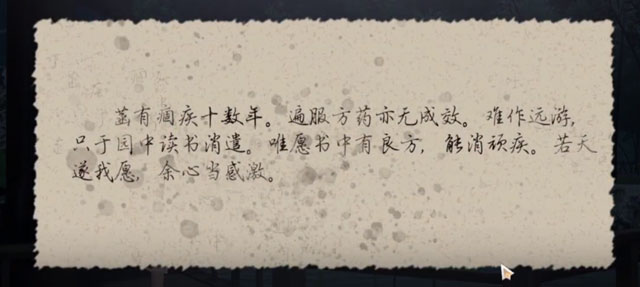 茧有痼疾十数年。遍服方药亦无成效。难作远游,
只于园中读书消遣。唯愿书中有良方,能消顽疾。若天
遂我愿,余心当感激。